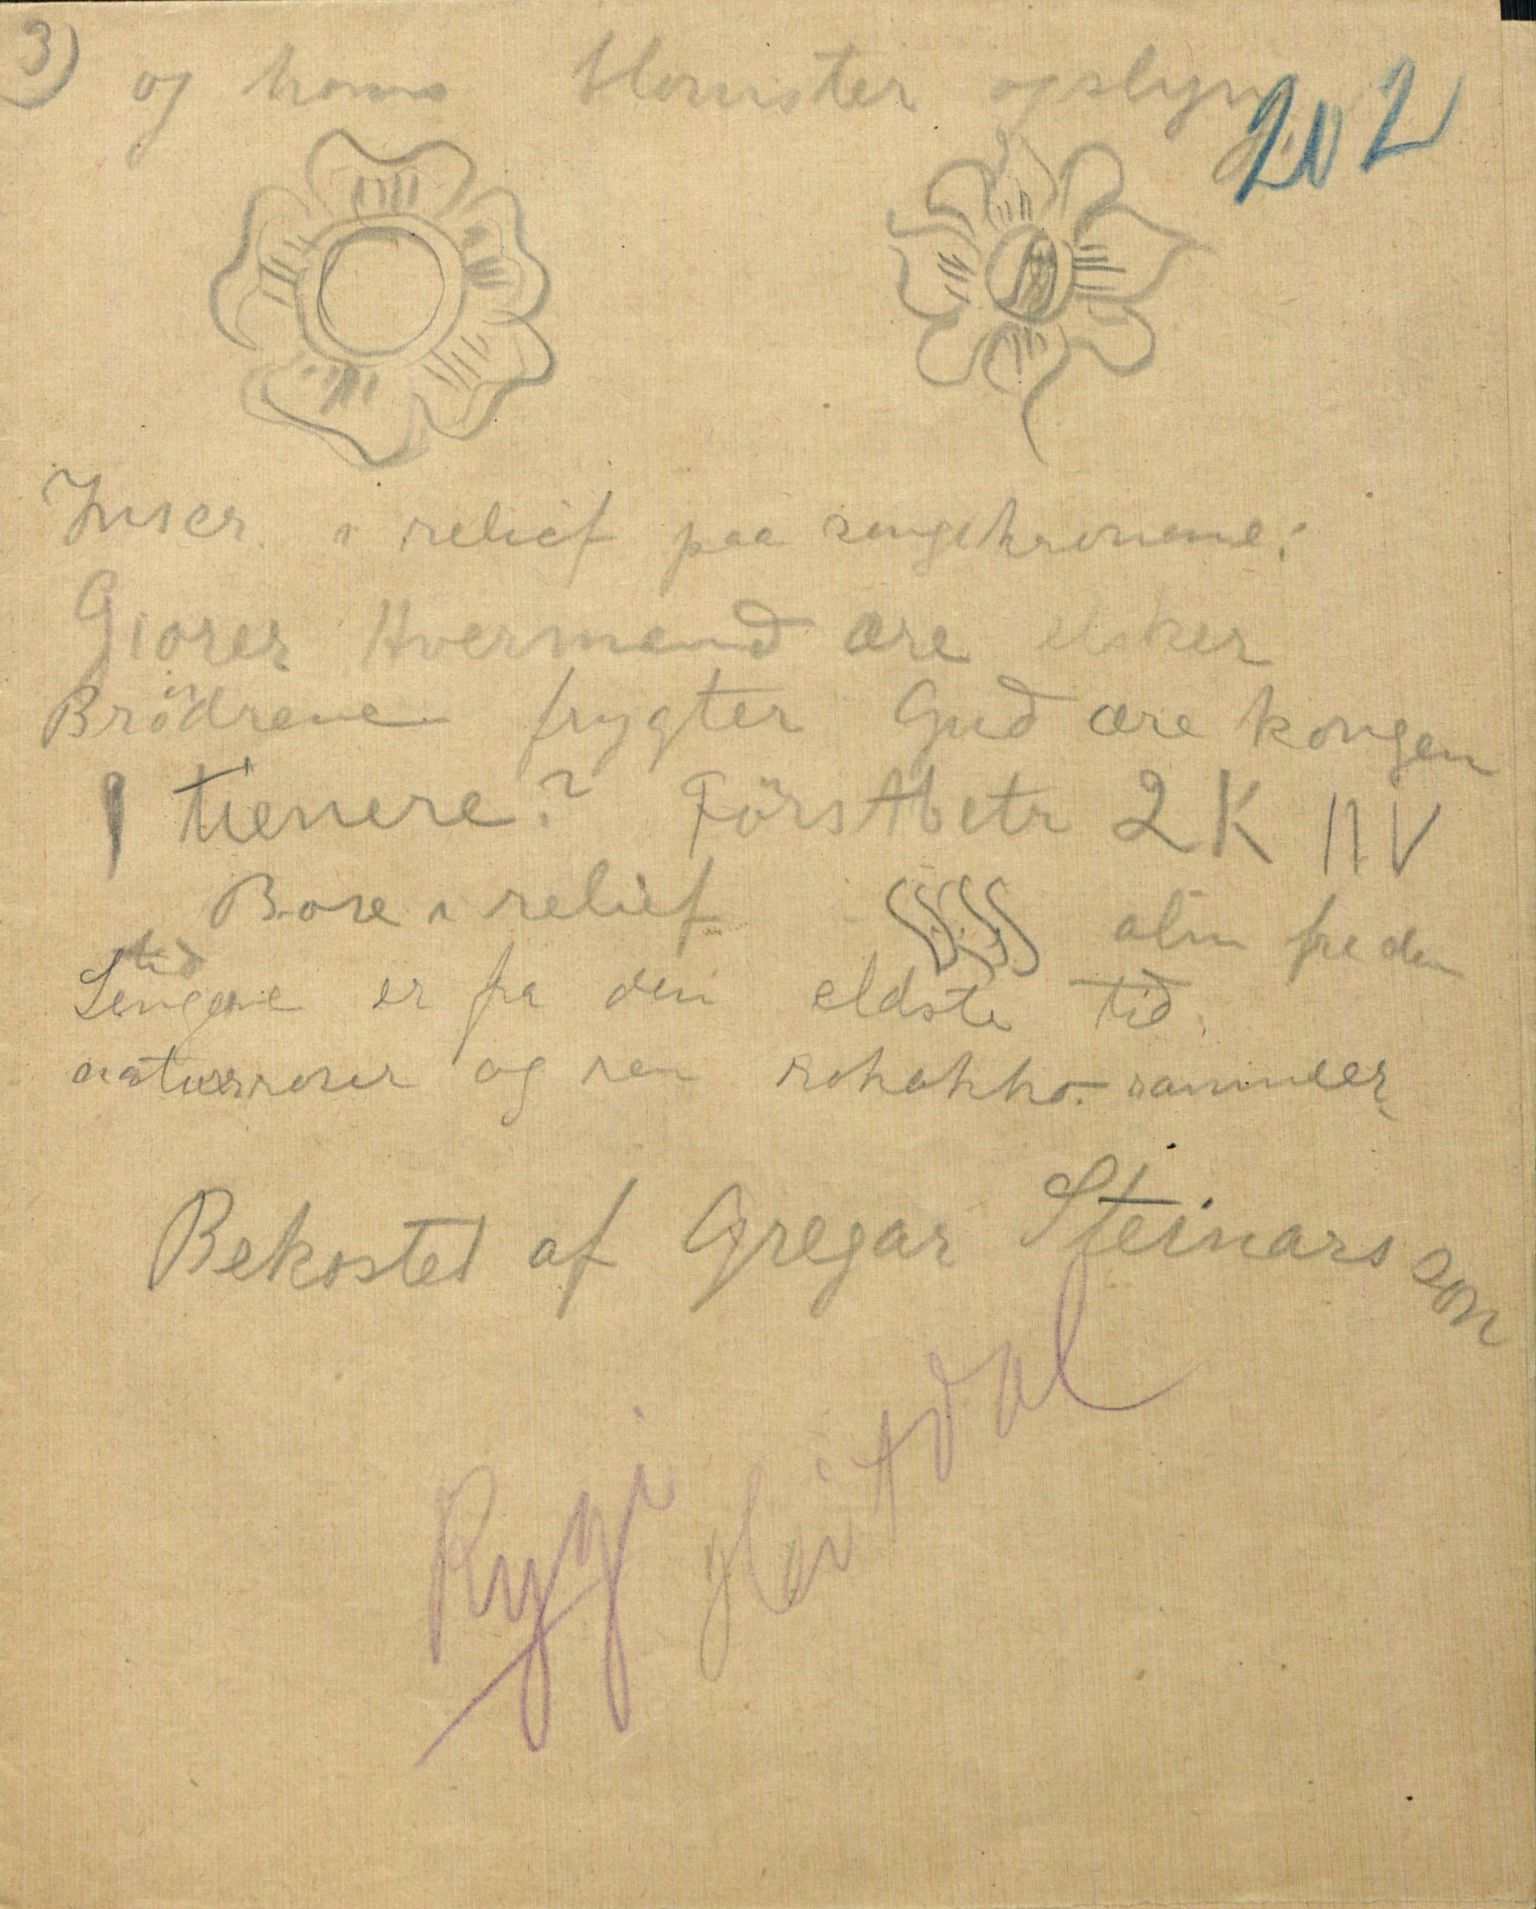 3) og hans blomster og slyng
202
Inscr. i relief paa sengekronene:
Giører Hvermand ære elsker
Brödrene frygter Gud ære kongen
I tienere? Först Petr 2 K 17 V
Bare i relief alm fra den
tid
Sengene er fra den eldste tid.
naturroser og ren rokokko-rammeer
Bekostet af Gregar Steinarsson
Rygi
Hövtdal